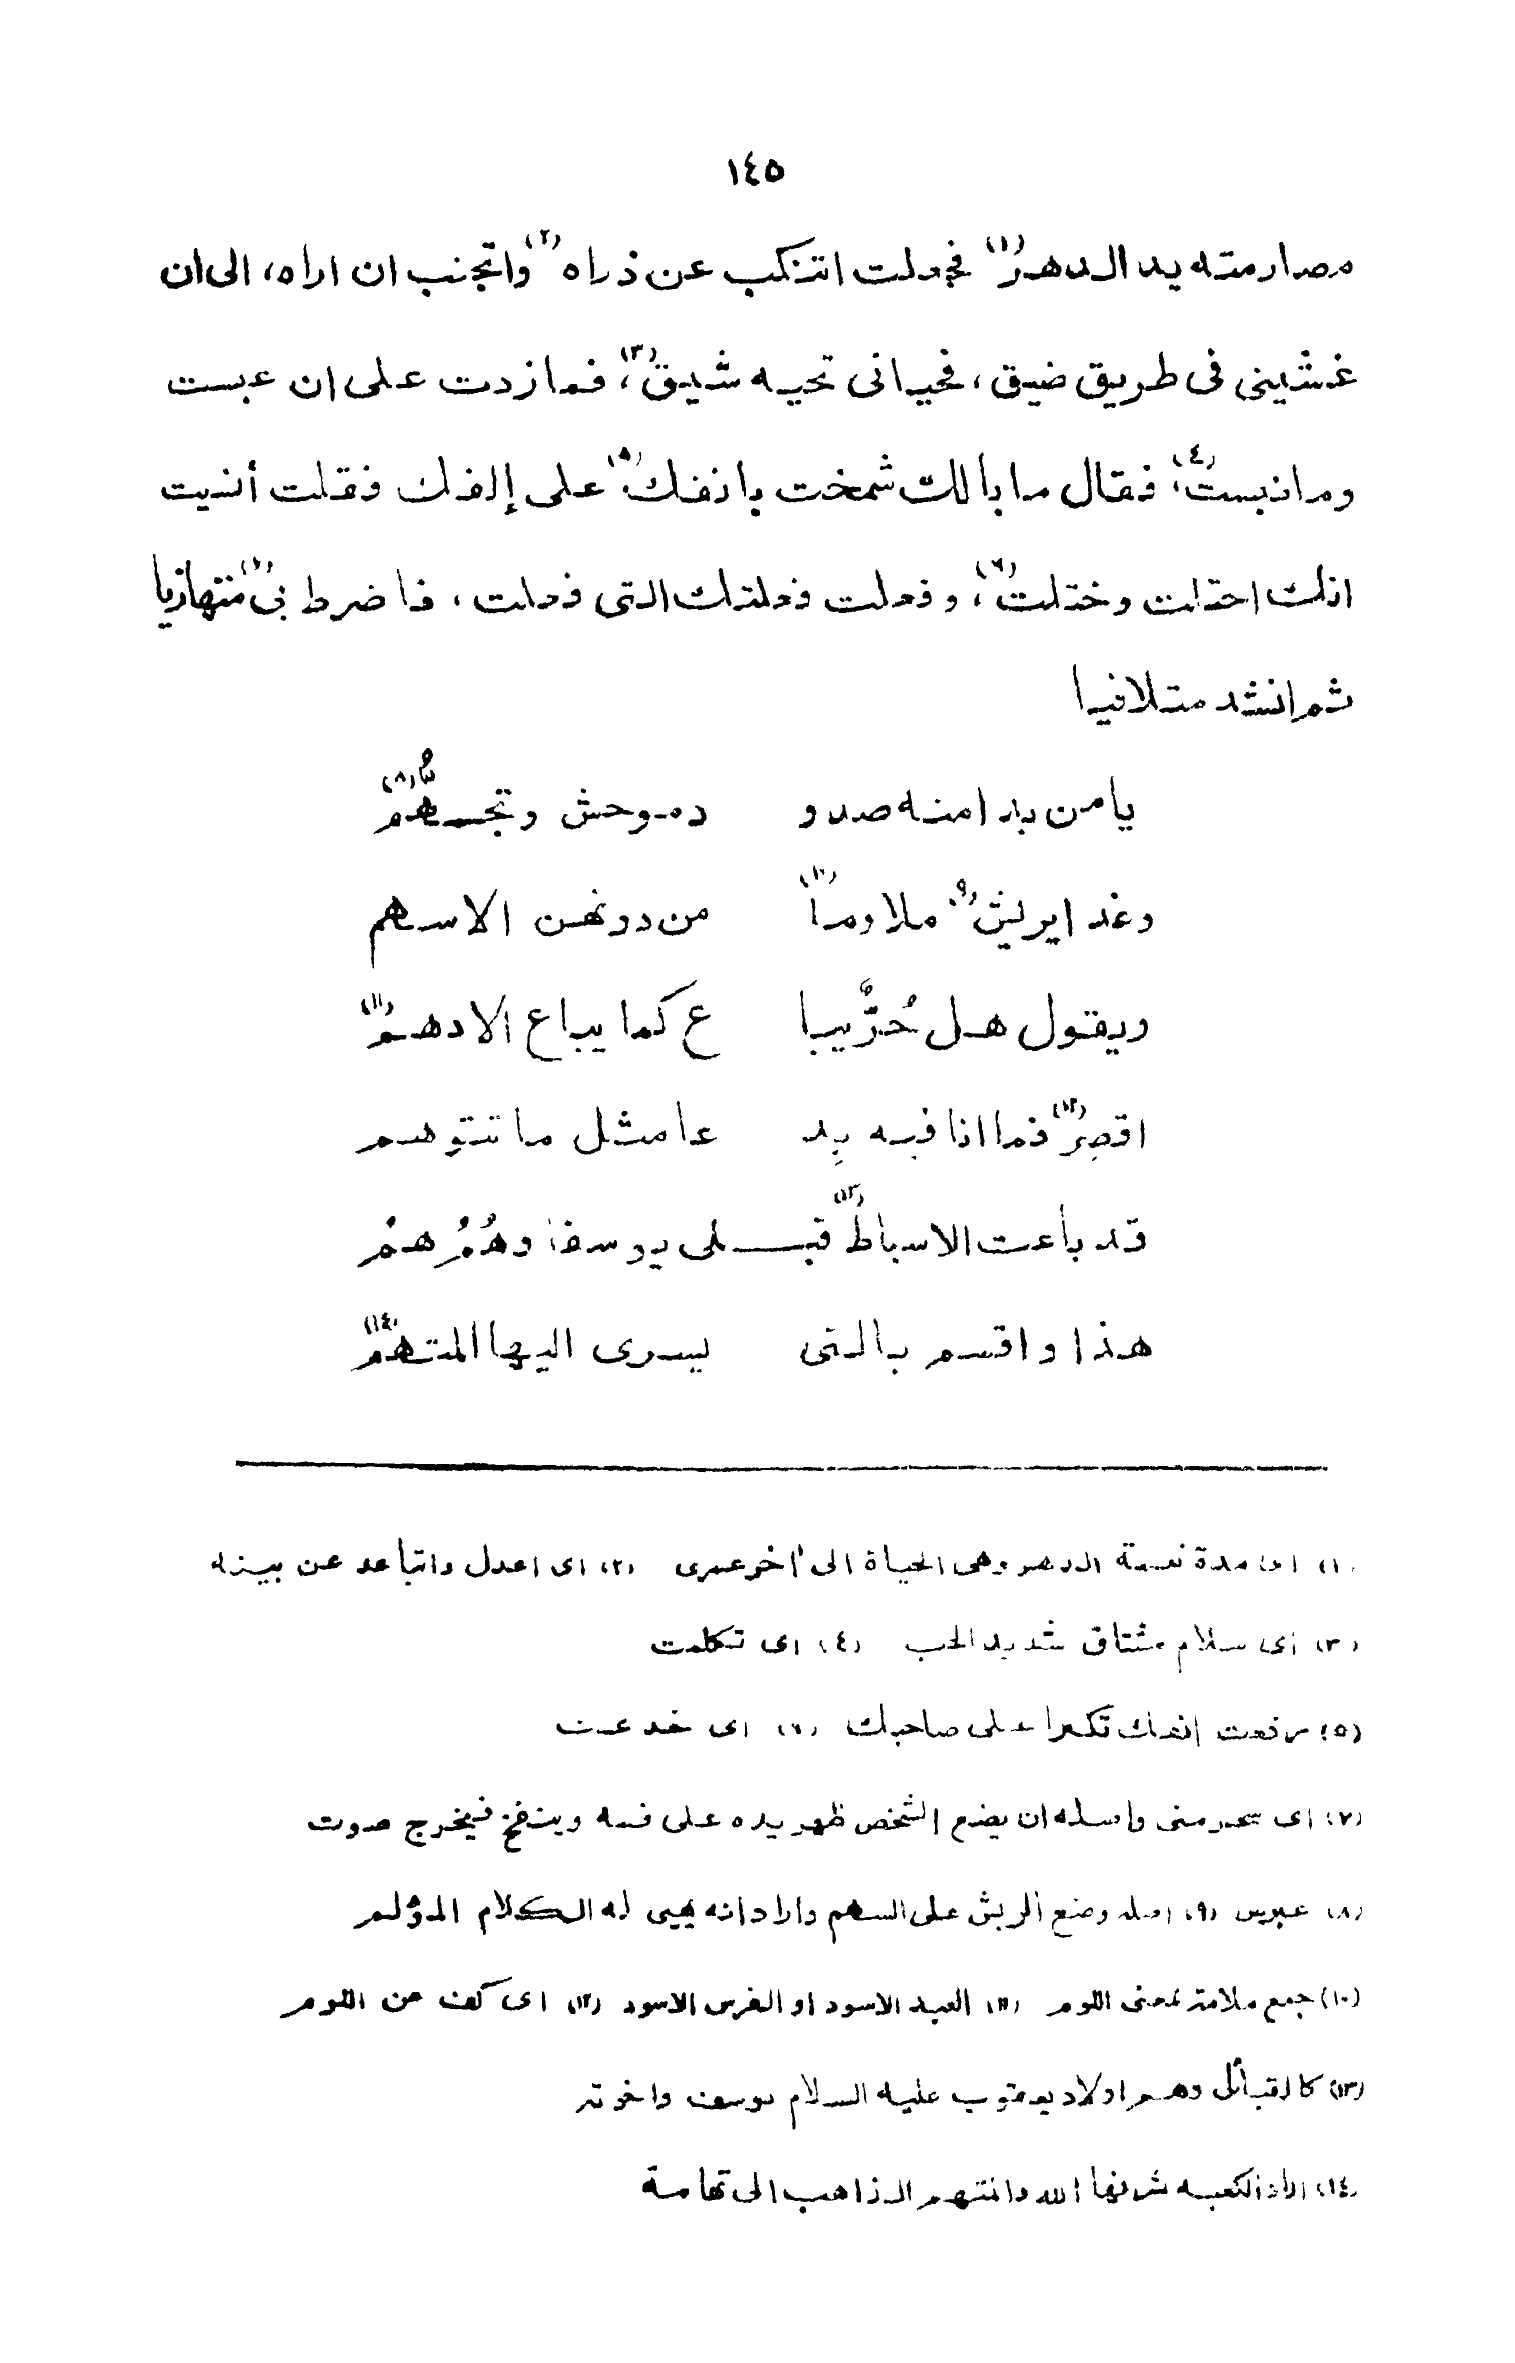 ١٤٥
مصارمته يد الدهر(١) فجعلت اتنكب عن ذراه(٢) واتجنب ان اراه، الى ان
غشيني في طريق ضيق، فحياني تحيه شيق(٣)، فما زدت على ان عبست
وما نبست(٤)، فقال ما بالك شمخت بانفك(٥) على إلفك فقلت أنسيت
انك احتلت وختلت(٦)، وفعلت فعلتك التي فعلت، فاضرط بي(٧) متهازيا
ثم انشد متلافيا
يا من بدا منه صدو دموحش وتجهّمٌ(٨)
وغدا يريش(٩) ملاوما(١٠) من دونهن الاسهم
ويقول هل حُرٌّ يبا ع كما يباع الادهمُ(١١)
اقصِرْ(١٢) فما انا فيه بِد عا مثل ما تتوهم
قد باعت الاسباطُ(١٣) قبـلى يوسفا وهُمُ همُ
هذا واقسم بالتى يسرى اليها المتهمُ(١٤)
(١) اى مدة نعمة الدهر وهى الحياة الى آخر عمرى (٢) اى اعدل واتباعد عن بيته
(٣) اى سلام مشتاق شديد الحب (٤) اى تكلمت
(٥) رفعت انفك تكبرا على صاحبك (٦) اى خدعت
(٧) اى سخر منى واصله ان يضع الشخص ظهر يده على فمه وينفخ فيخرج صوت
(٨) عبوس (٩) اصله وضع الريش على السهم وارادانه يهيى له الكلام المؤلم
(١٠) جمع ملامة بمعنى اللوم (١١) العبد الاسود او الفرس الاسود (١٢) اى كف عن اللوم
(١٣) كالقبائل وهم اولاد يعقوب عليه السلام يوسف واخوته
(١٤) اراد الكعبه شرفها الله والمتهم الذاهب الى تهامة